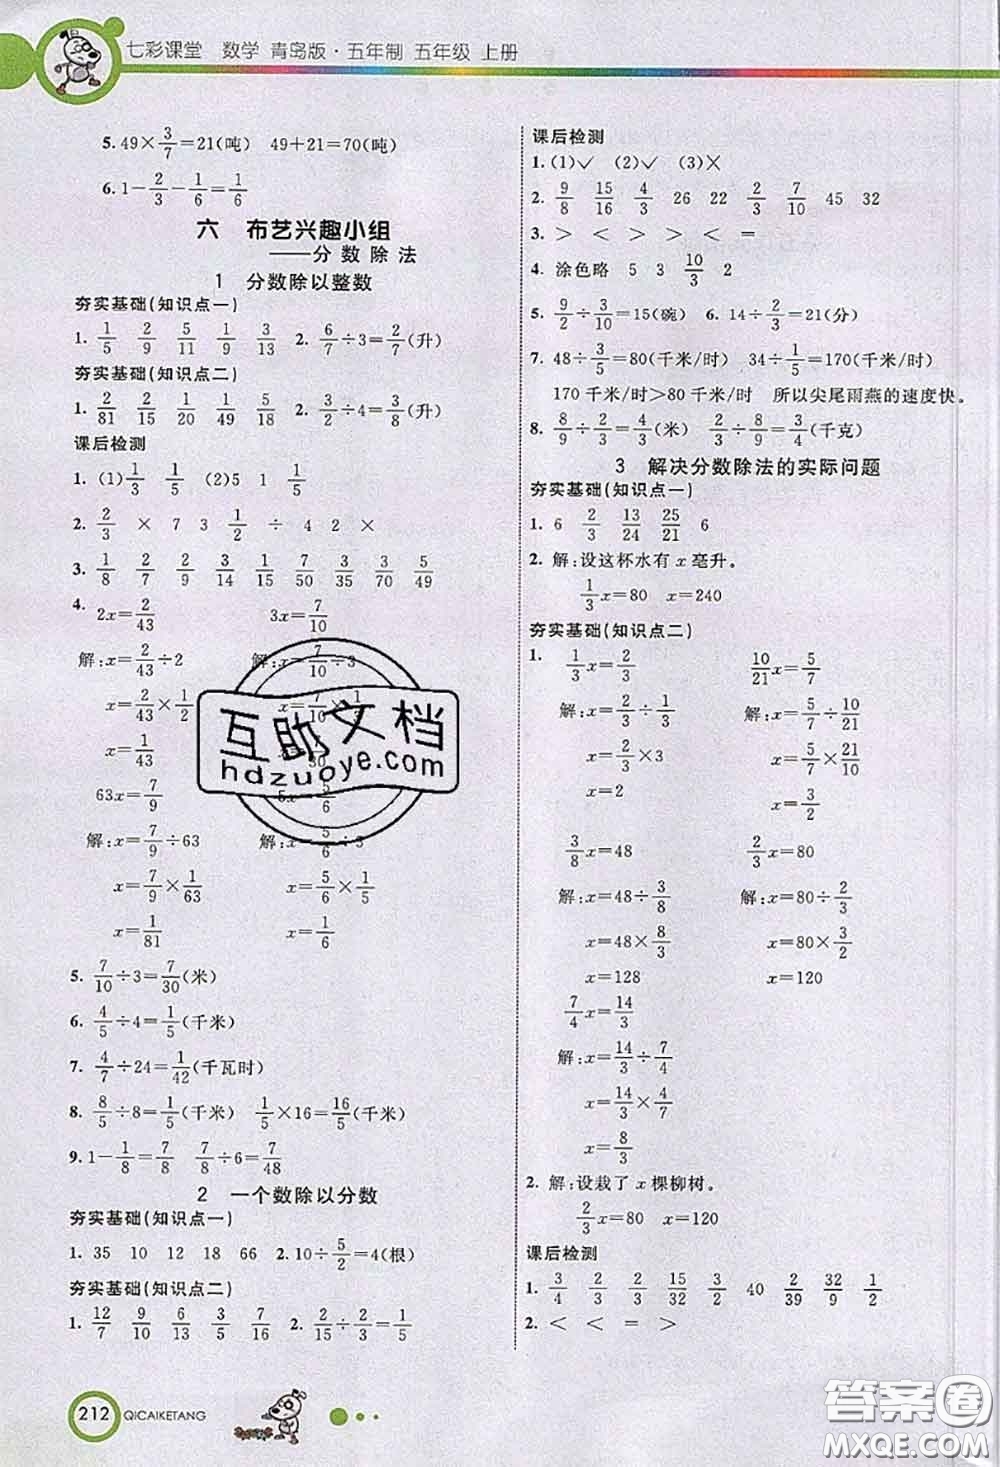 七彩课堂 数学 青岛版·五年制 五年级 上册
5. 49×3/7=21(吨) 49+21=70(吨)
6. 1-2/3-1/6=1/6
六 布艺兴趣小组
——分数除法
1 分数除以整数
夯实基础(知识点一)
1. 1/5 2/9 5/11 1/9 3/13 2. 6/7÷3=2/7(升)
夯实基础(知识点二)
1. 2/81 2/15 1/20 1/49 5/18 2. 3/2÷4=3/8(升)
课后检测
1. (1)1/3 1/5 (2)5 1 1/3
2. 2/3 × 7 3 1/2 ÷ 4 2 ×
3. 1/8 2/7 2/9 3/14 4/15 7/50 3/35 3/70 5/49
4. 2x=2/43 3x=7/10
解:x=2/43÷2 解:x=7/10÷3
x=2/43×1/2 x=7/10×1/3
x=1/43
63x=7/9 5/6
解:x=7/9÷63 解:x=5/6÷3
x=7/9×1/63 x=5/6×1/5
x=1/81 x=1/6
5. 7/10÷3=7/30(米)
6. 4/5÷4=1/5(千米)
7. 4/7÷24=1/42(千瓦时)
8. 8/5÷8=1/5(千米) 1/5×16=16/5(千米)
9. 1-1/8=7/8 7/8÷6=7/48
2 一个数除以分数
夯实基础(知识点一)
1. 35 10 12 18 66 2. 10÷5/2=4(根)
夯实基础(知识点二)
1. 12/7 9/10 6/13 3/5 7/16 2. 2/15÷2/3=1/5
课后检测
1. (1)✓ (2)✓ (3)×
2. 9/8 15/16 4/3 26 22 2/3 7/10 45 32
3. > < > < < =
4. 涂色略 5 3 10/3 2
5. 9/2÷3/10=15(碗) 6. 14÷2/3=21(分)
7. 48÷3/5=80(千米/时) 34÷1/5=170(千米/时)
170千米/时>80千米/时 所以尖尾雨燕的速度快。
8. 8/9÷2/3=4/3(米) 2/3÷8/9=3/4(千克)
3 解决分数除法的实际问题
夯实基础(知识点一)
1. 6 2/3 13/24 25/21 6
2. 解:设这杯水有x毫升。
1/3x=80 x=240
夯实基础(知识点二)
1. 1/3x=2/3 10/21x=5/7
解:x=2/3÷1/3 解:x=5/7÷10/21
x=2/3×3 x=5/7×21/10
x=2 x=3/2
3/8x=48 2/3x=80
解:x=48÷3/8 解:x=80÷2/3
x=48×8/3 x=80×3/2
x=128 x=120
7/4x=14/3
解:x=14/3÷7/4
x=14/3×4/7
x=8/3
2. 解:设栽了x棵柳树。
2/3x=80 x=120
课后检测
1. 3/4 2/3 2/3 15/32 3/2 40 2/39 32/9 1/2
2. < < = > <
212 QICAIKETANG
互助文档
hdzuoye.com
答案圈
MXQE.COM